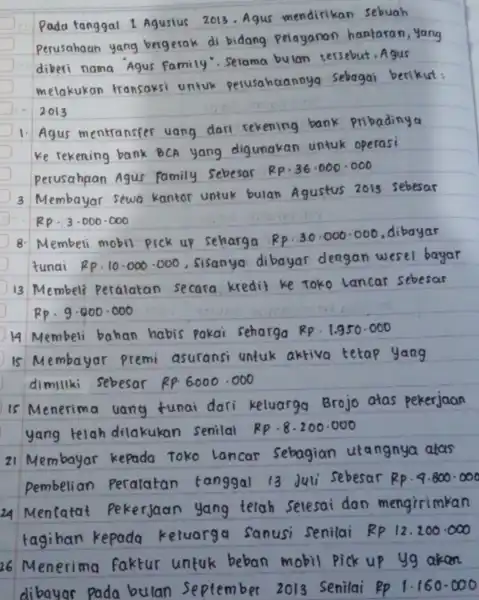 Pada tanggal 1 Agustus 2013. Agus mendirikan sebuah
perusahaan yang bergerak di bidang pelayanan hantaran, yang
diberi nama "Agus Family". Selama bulan tersebut, Agus
melakukan transaksi untuk perusahaannya sebagai berikut:
2013
1. Agus mentransfer uang dari rekening bank pribadinya
ke rekening bank BCA yang digunakan untuk operasi
perusahaan Agus Family sebesar Rp. 36.000.000
3 Membayar sewa kantor untuk bulan Agustus 2013 sebesar
Rp. 3.000.000
8. Membeli mobil pick up seharga Rp. 30.000.000, dibayar
tunai Rp. 10.000.000, sisanya dibayar dengan wesel bayar
13 Membeli peralatan secara kredit ke Toko Lancar sebesar
Rp. 9.900.000
14 Membeli bahan habis pakai seharga Rp. 1.950.000
15 Membayar premi asuransi untuk aktiva tetap yang
dimiliki sebesar Rp 6000.000
15 Menerima uang tunai dari keluarga Brojo atas pekerjaan
yang telah dilakukan senilai Rp. 8.200.000
21 Membayar kepada Toko Lancar sebagian utangnya atas
pembelian peralatan tanggal 13 Juli sebesar Rp. 4.800.000
24 Mencatat pekerjaan yang telah selesai dan mengirimkan
tagihan kepada keluarga Sanusi senilai Rp 12.200.000
26 Menerima faktur untuk beban mobil pick up yg akan
dibayar pada bulan September 2013 senilai Rp 1.160.000